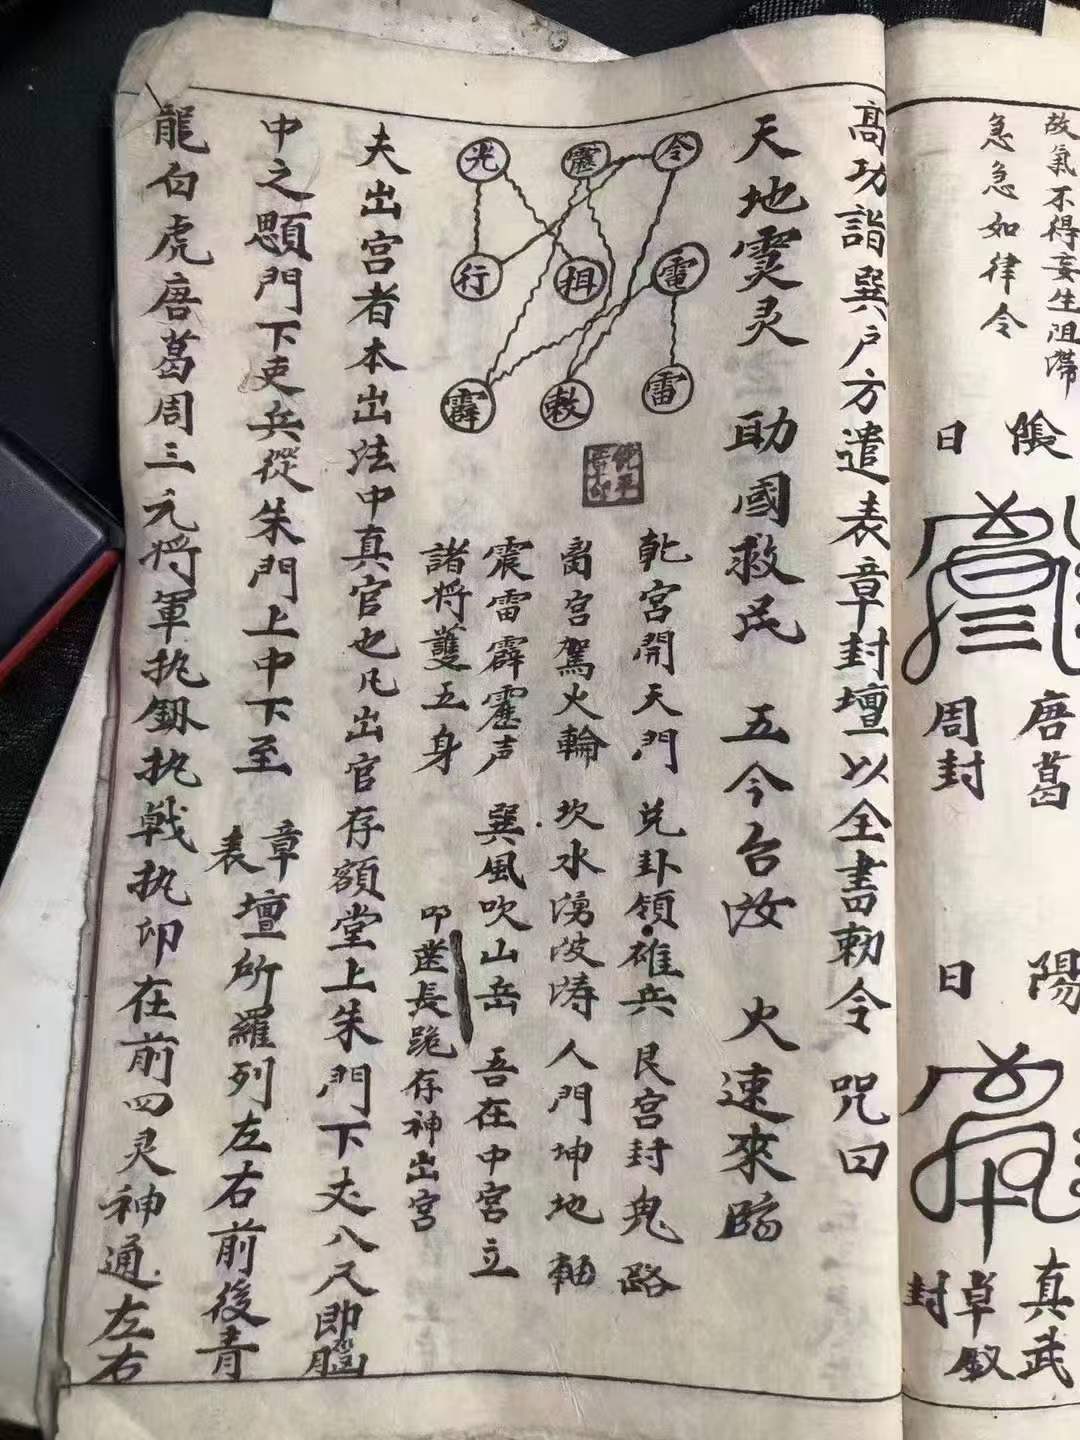 故氣不得妄生阻滯
急急如律令
陰
日
唐葛
周封
陽
日
真武
卓釵
封
高功詣巽户方遣表章封壇以全書勑令 咒曰
天地霊灵 助國救民 五今台汝 火速來臨
令 電 雷
震 揖 敕
光 行 霹
乾宮開天門 兑卦領雄兵 艮宮封鬼路
离宮駕火輪 坎水湧波涛 人門坤地軸
震雷霹靂声 巽風吹山岳 吾在中宮立
諸將護五身 叩齒長跪存神出宮
夫出宮者本出法中真官也凡出官存額堂上朱門下丈八尺即腦
中之顋門下吏兵從朱門上中下至 章表 壇所羅列左右前後青
龍白虎唐葛周三元将軍执劔执戟执印在前四灵神通左右